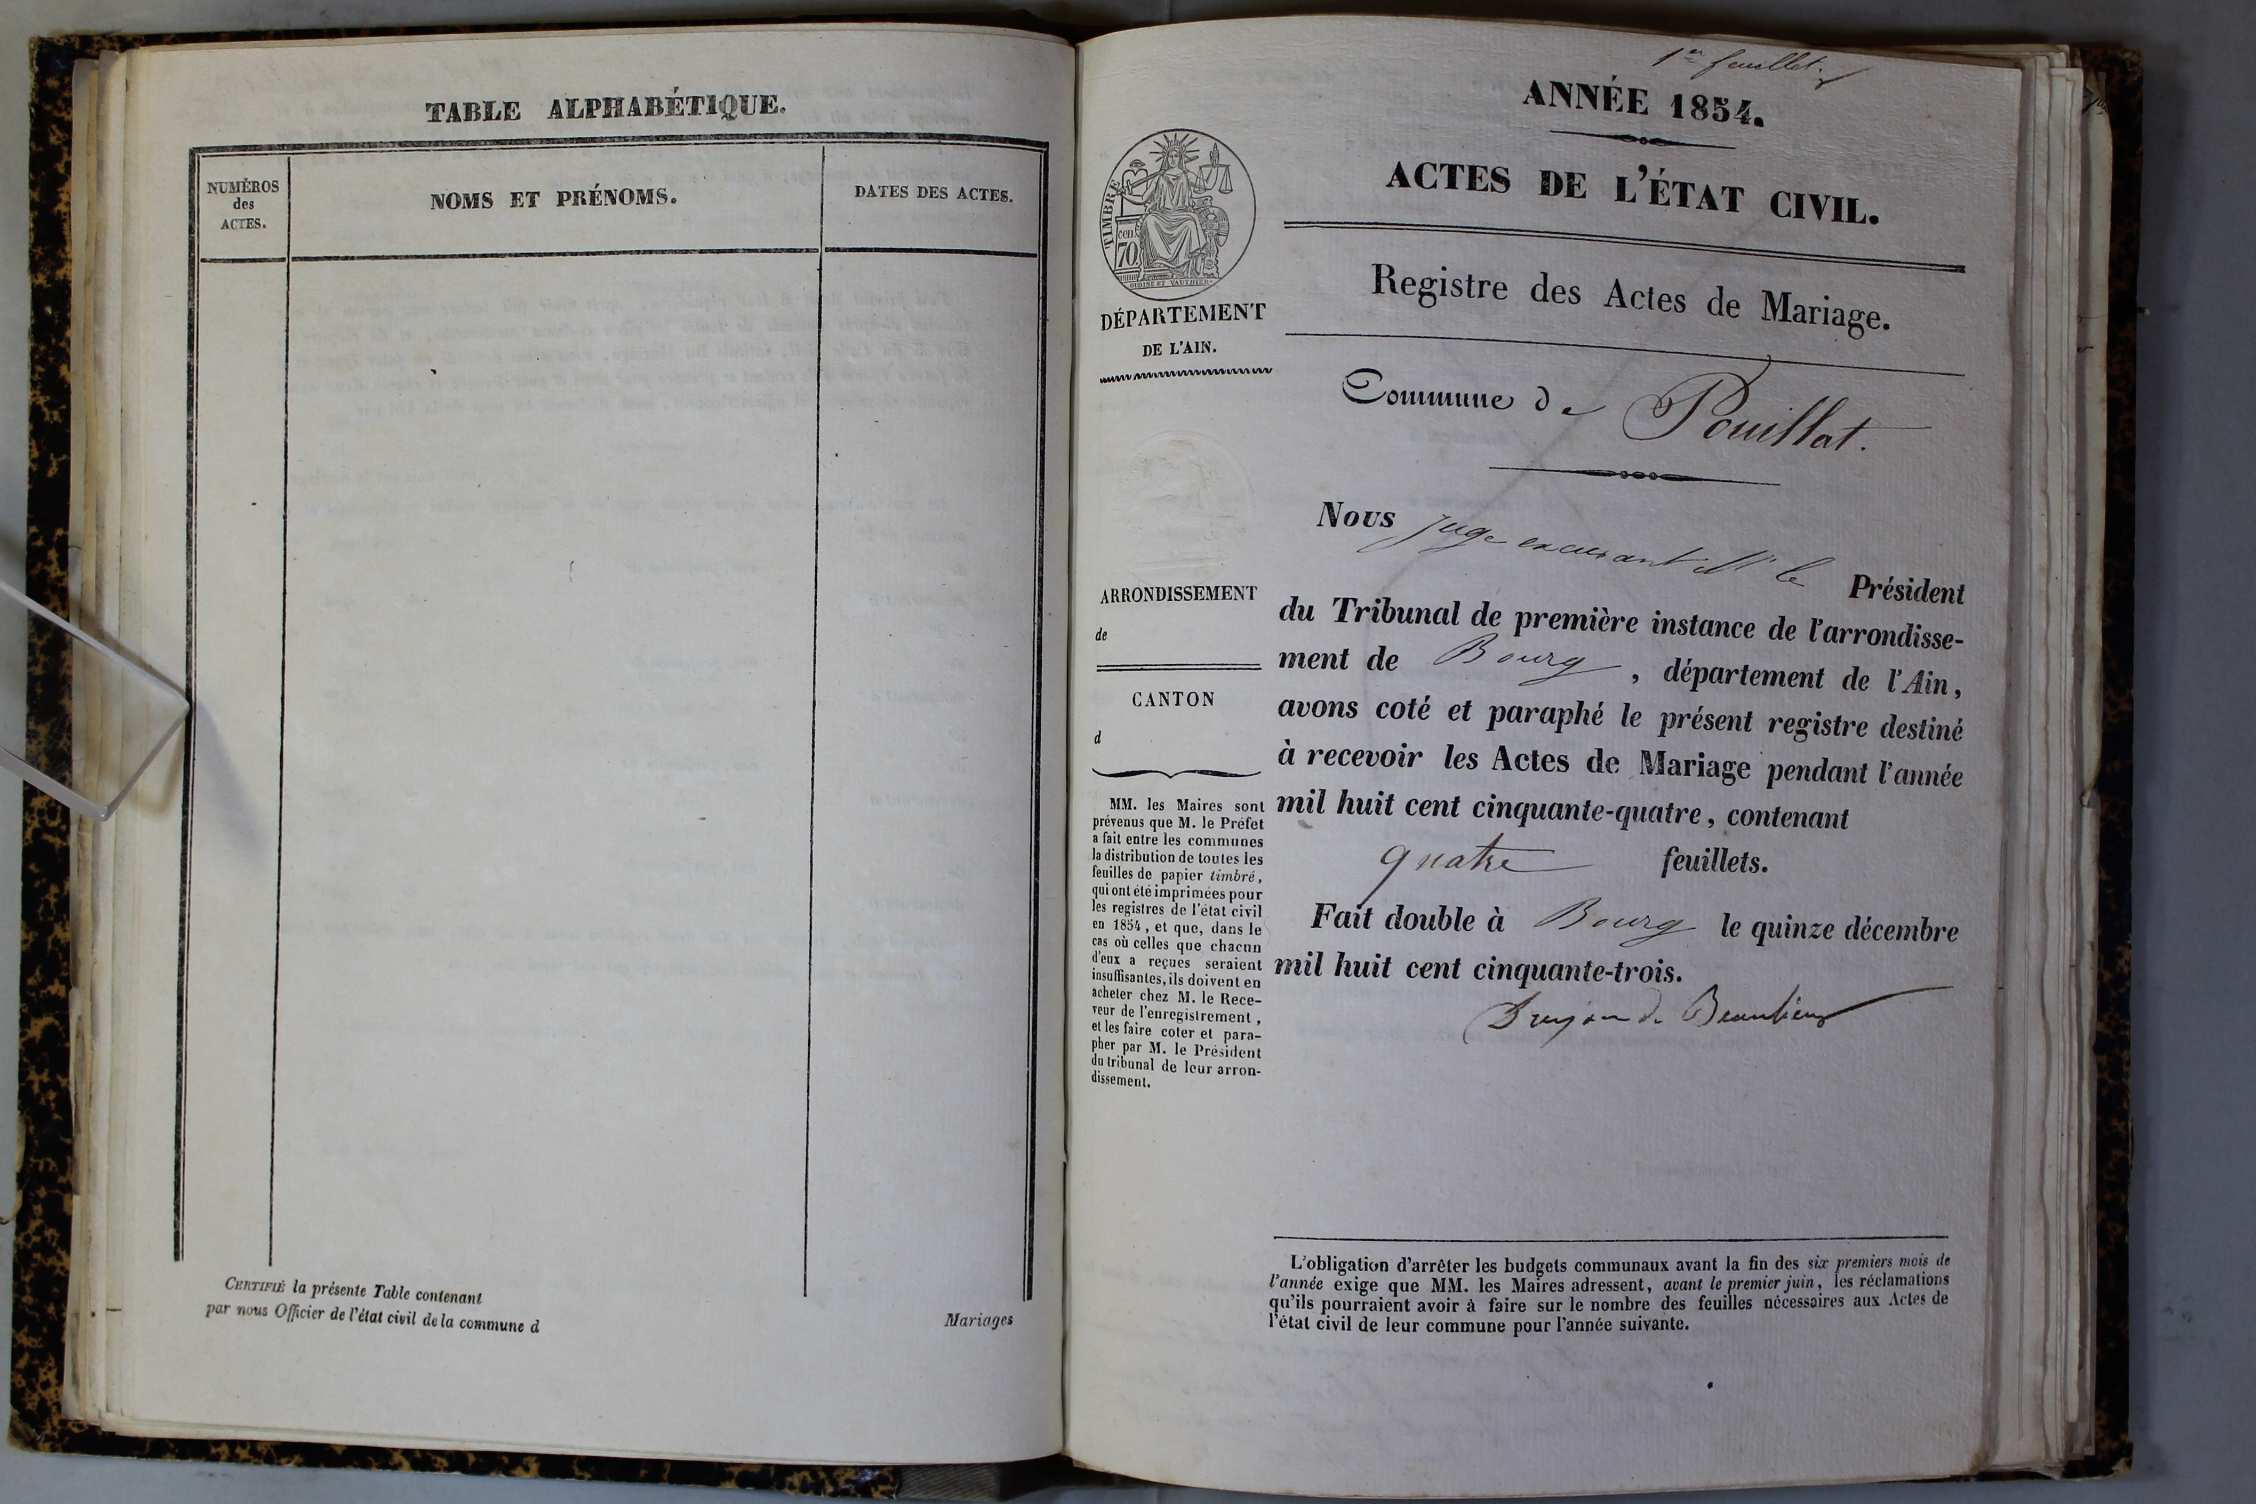 TABLE ALPHABÉTIQUE.
NUMÉROS
des
ACTES.
NOMS ET PRÉNOMS.
DATES DES ACTES.
CERTIFIÉ la présente Table contenant
par nous Officier de l'état civil de la commune d
Mariages
1er feuillet.
ANNÉE 1854.
ACTES DE L'ÉTAT CIVIL.
Registre des Actes de Mariage.
Commune de Pouillat.
TIMBRE
cen.
70.
DÉPARTEMENT
DE L'AIN.
ARRONDISSEMENT
de
CANTON
d
MM. les Maires sont
prévenus que M. le Préfet
a fait entre les communes
la distribution de toutes les
feuilles de papier timbré,
qui ont été imprimées pour
les registres de l'état civil
en 1854, et que, dans le
cas où celles que chacun
d'eux a reçues seraient
insuffisantes, ils doivent en
acheter chez M. le Rece-
veur de l'enregistrement,
et les faire coter et para-
pher par M. le Président
du tribunal de leur arron-
dissement.
Nous juge excusant Mr le Président
du Tribunal de première instance de l'arrondisse-
ment de Bourg, département de l'Ain,
avons coté et paraphé le présent registre destiné
à recevoir les Actes de Mariage pendant l'année
mil huit cent cinquante-quatre, contenant
quatre feuillets.
Fait double à Bourg le quinze décembre
mil huit cent cinquante-trois.
de Beaulieu
L'obligation d'arrêter les budgets communaux avant la fin des six premiers mois de
l'année exige que MM. les Maires adressent, avant le premier juin, les réclamations
qu'ils pourraient avoir à faire sur le nombre des feuilles nécessaires aux Actes de
l'état civil de leur commune pour l'année suivante.